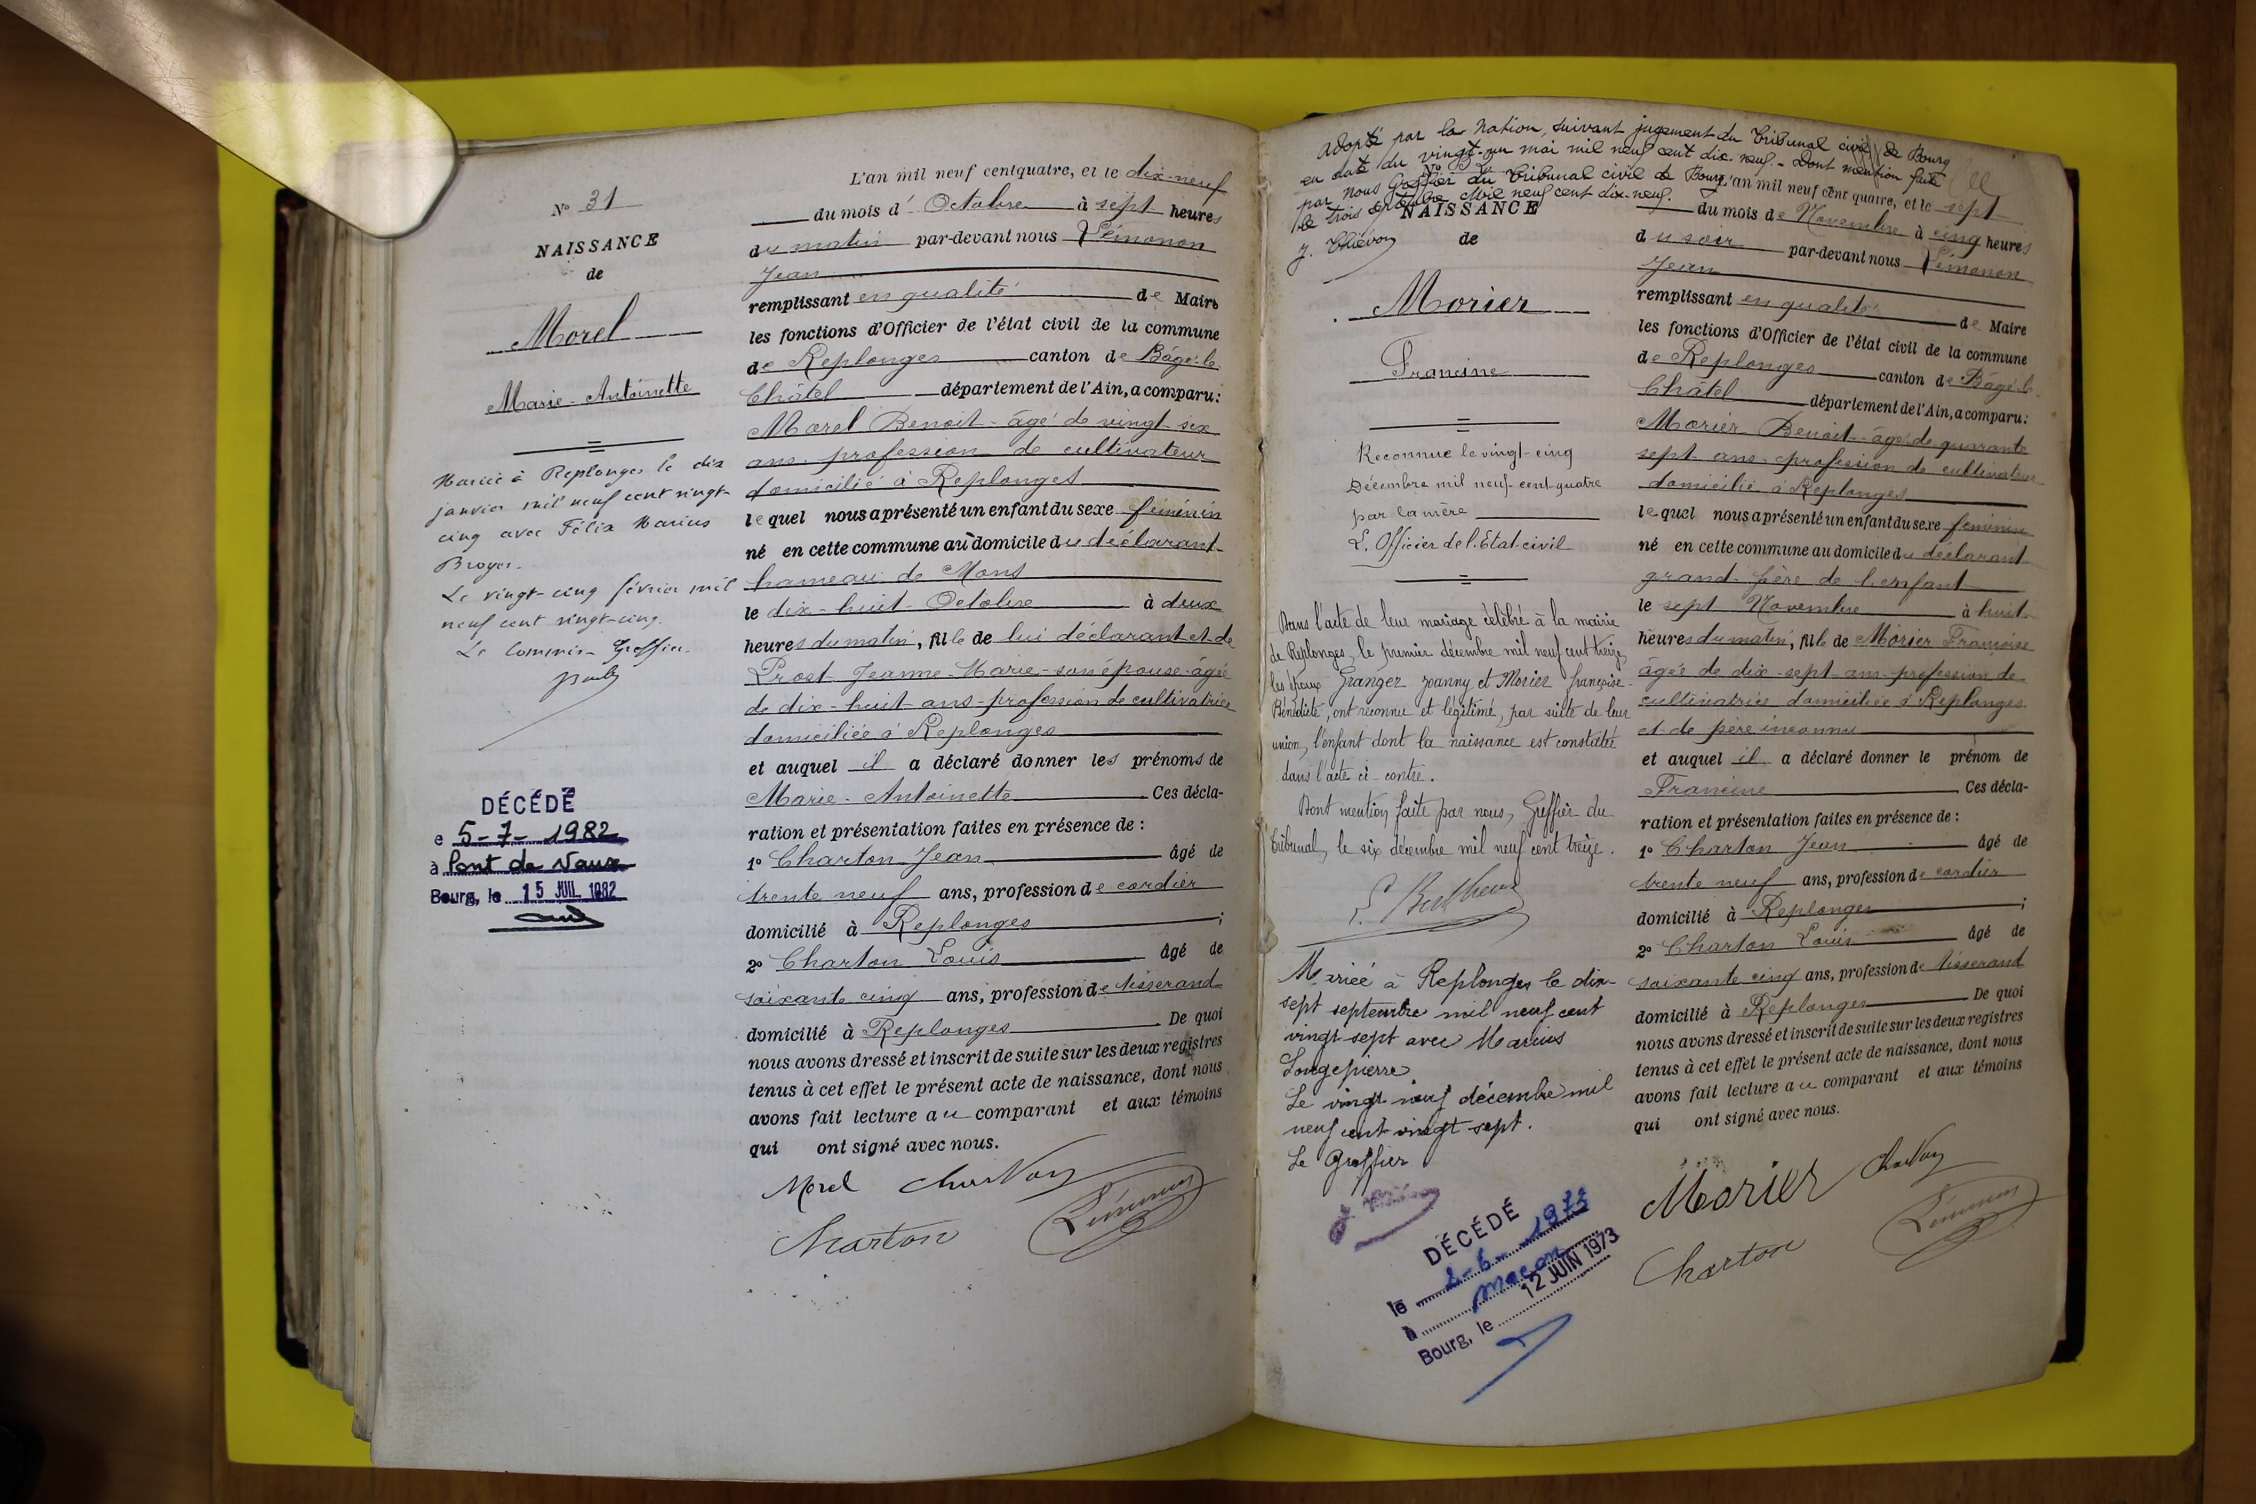 N° 31
NAISSANCE
de
Morel
Marie-Antoinette
Mariée à Replonges le dix
janvier mil neuf cent vingt-
cinq avec Félix Marius
Broyer.
Le vingt-cinq février mil
neuf cent vingt-cinq.
Le Commis Greffier.
DÉCÉDÉ
e 5-7-1982
à Pont de Vaux
Bourg, le 15 JUIL 1982
L'an mil neuf cent quatre, et le dix-neuf
du mois d'Octobre à sept heures
du matin par-devant nous Lémonon
Jean
remplissant en qualité de Maire
les fonctions d'Officier de l'état civil de la commune
de Replonges canton de Bâgé-le
Châtel département de l'Ain, a comparu:
Morel Benoit-âgé de vingt-six
ans-profession de cultivateur
domicilié à Replonges
lequel nous a présenté un enfant du sexe féminin
né en cette commune au domicile du déclarant
hameau de Mons
le dix-huit Octobre à deux
heures du matin, fille de lui déclarant et de
Prost Jeanne-Marie-son épouse-âgée
de dix-huit ans-profession de cultivatrice
domiciliée à Replonges
et auquel il a déclaré donner les prénoms de
Marie-Antoinette Ces décla-
ration et présentation faites en présence de :
1° Charton Jean âgé de
trente neuf ans, profession de cordier
domicilié à Replonges ;
2° Charton Louis âgé de
soixante cinq ans, profession de tisserand
domicilié à Replonges De quoi
nous avons dressé et inscrit de suite sur les deux registres
tenus à cet effet le présent acte de naissance, dont nous
avons fait lecture au comparant et aux témoins
qui ont signé avec nous.
Morel Charton
Charton Lémonon
Adopté par la Nation, suivant jugement du Tribunal civil de Bourg
en date du vingt-un mai mil neuf cent dix-neuf.- Dont mention faite
par nous Greffier du Tribunal civil de Bourg,
le trois septembre mil neuf cent dix-neuf.
NAISSANCE
de
Morier
Francine
Reconnue le vingt-cinq
Décembre mil neuf-cent-quatre
par la mère
L'Officier de l'Etat-civil
Dans l'acte de leur mariage célébré à la mairie
de Replonges, le premier décembre mil neuf cent treize,
les époux Granger Joanny et Morier françoise-
Bénédicte, ont reconnu et légitimé, par suite de leur
union, l'enfant dont la naissance est constatée
dans l'acte ci-contre.
Dont mention faite par nous, Greffier du
tribunal, le six décembre mil neuf cent treize.
Mariée à Replonges le dix-
sept septembre mil neuf cent
vingt-sept avec Marius
Longepierre
Le vingt neuf décembre mil
neuf cent vingt sept.
Le Greffier
DÉCÉDÉ
le 2-6-1973
à Macon
Bourg, le 12 JUIN 1973
L'an mil neuf cent quatre, et le sept
du mois de Novembre à cinq heures
du soir par-devant nous Lémonon
Jean
remplissant en qualité de Maire
les fonctions d'Officier de l'état civil de la commune
de Replonges canton de Bâgé-le
Châtel département de l'Ain, a comparu:
Morier Benoit-âgé de quarante
sept ans-profession de cultivateur
domicilié à Replonges
lequel nous a présenté un enfant du sexe féminin
né en cette commune au domicile du déclarant
grand-père de l'enfant
le sept Novembre à huit
heures du matin, fille de Morier Françoise
âgée de dix-sept ans-profession de
cultivatrice domiciliée à Replonges
et de père inconnu
et auquel il a déclaré donner le prénom de
Francine Ces décla-
ration et présentation faites en présence de :
1° Charton Jean âgé de
trente neuf ans, profession de cordier
domicilié à Replonges ;
2° Charton Louis âgé de
soixante cinq ans, profession de tisserand
domicilié à Replonges De quoi
nous avons dressé et inscrit de suite sur les deux registres
tenus à cet effet le présent acte de naissance, dont nous
avons fait lecture au comparant et aux témoins
qui ont signé avec nous.
Morier Charton
Charton Lémonon